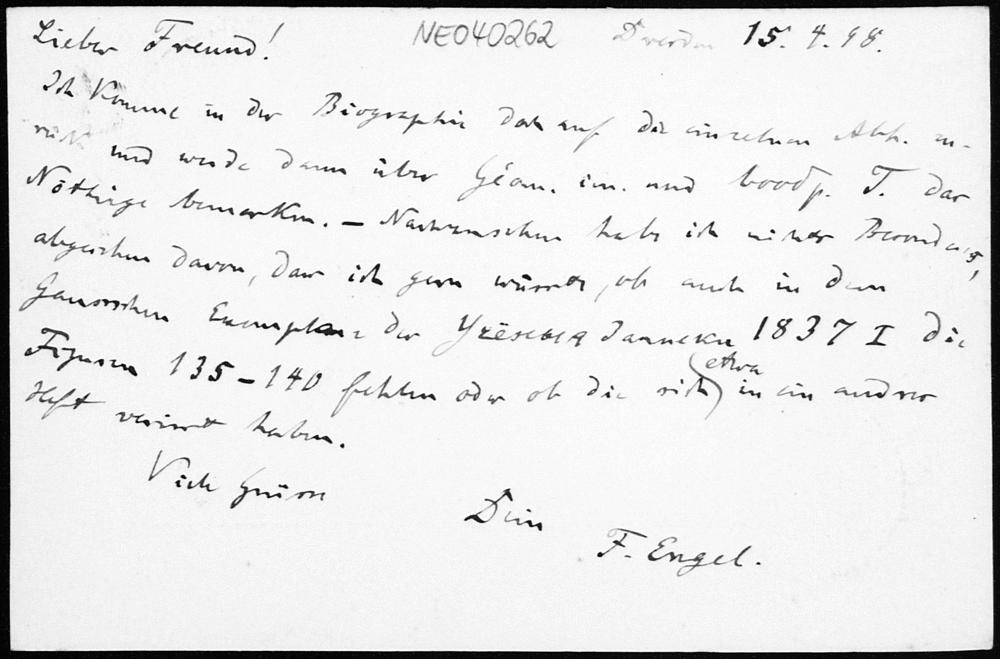 Lieber Freund! NE040262 Dresden 15. 4. 98.
Ich komme in der Biographie doch auf die einzelnen Abh. zu-
rück und werde dann über Géom. im. und T. das
Nöthige bemerken. — Nachzusehen habe ich nichts Besonderes,
abgesehen davon, dass ich gern wüsste, ob auch in dem
Gaussschen Exemplare der Ученыя Записки 1837 I die
Figuren 135–140 fehlen oder ob die sich etwa in ein andres
Heft verirrt haben.
Viele Grüsse
Dein
F. Engel.